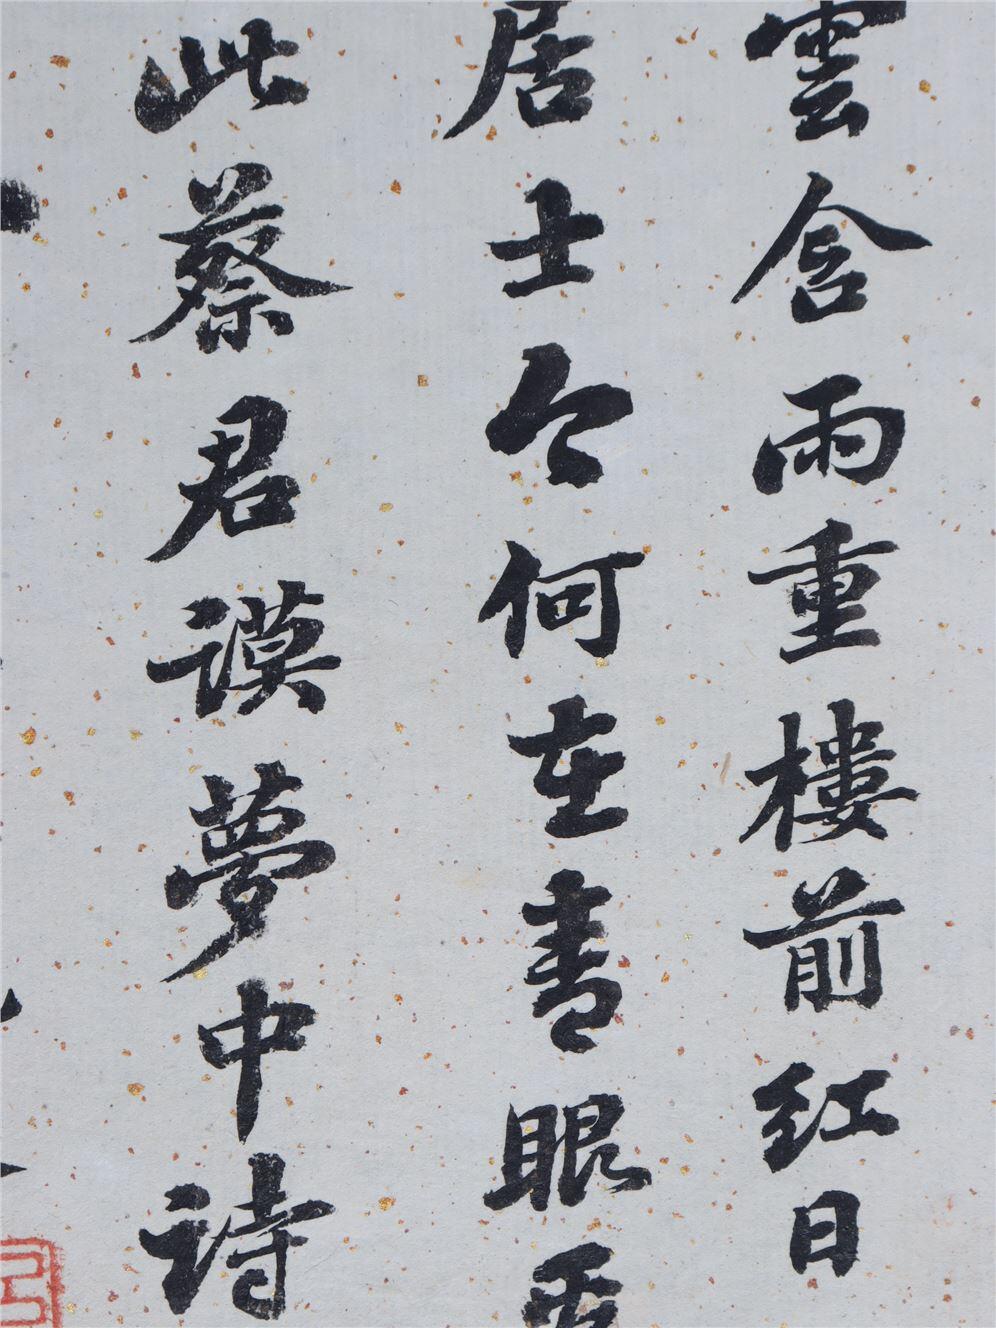 雲含雨重樓前紅日
居士今何在青眼看
此蔡君謨夢中詩